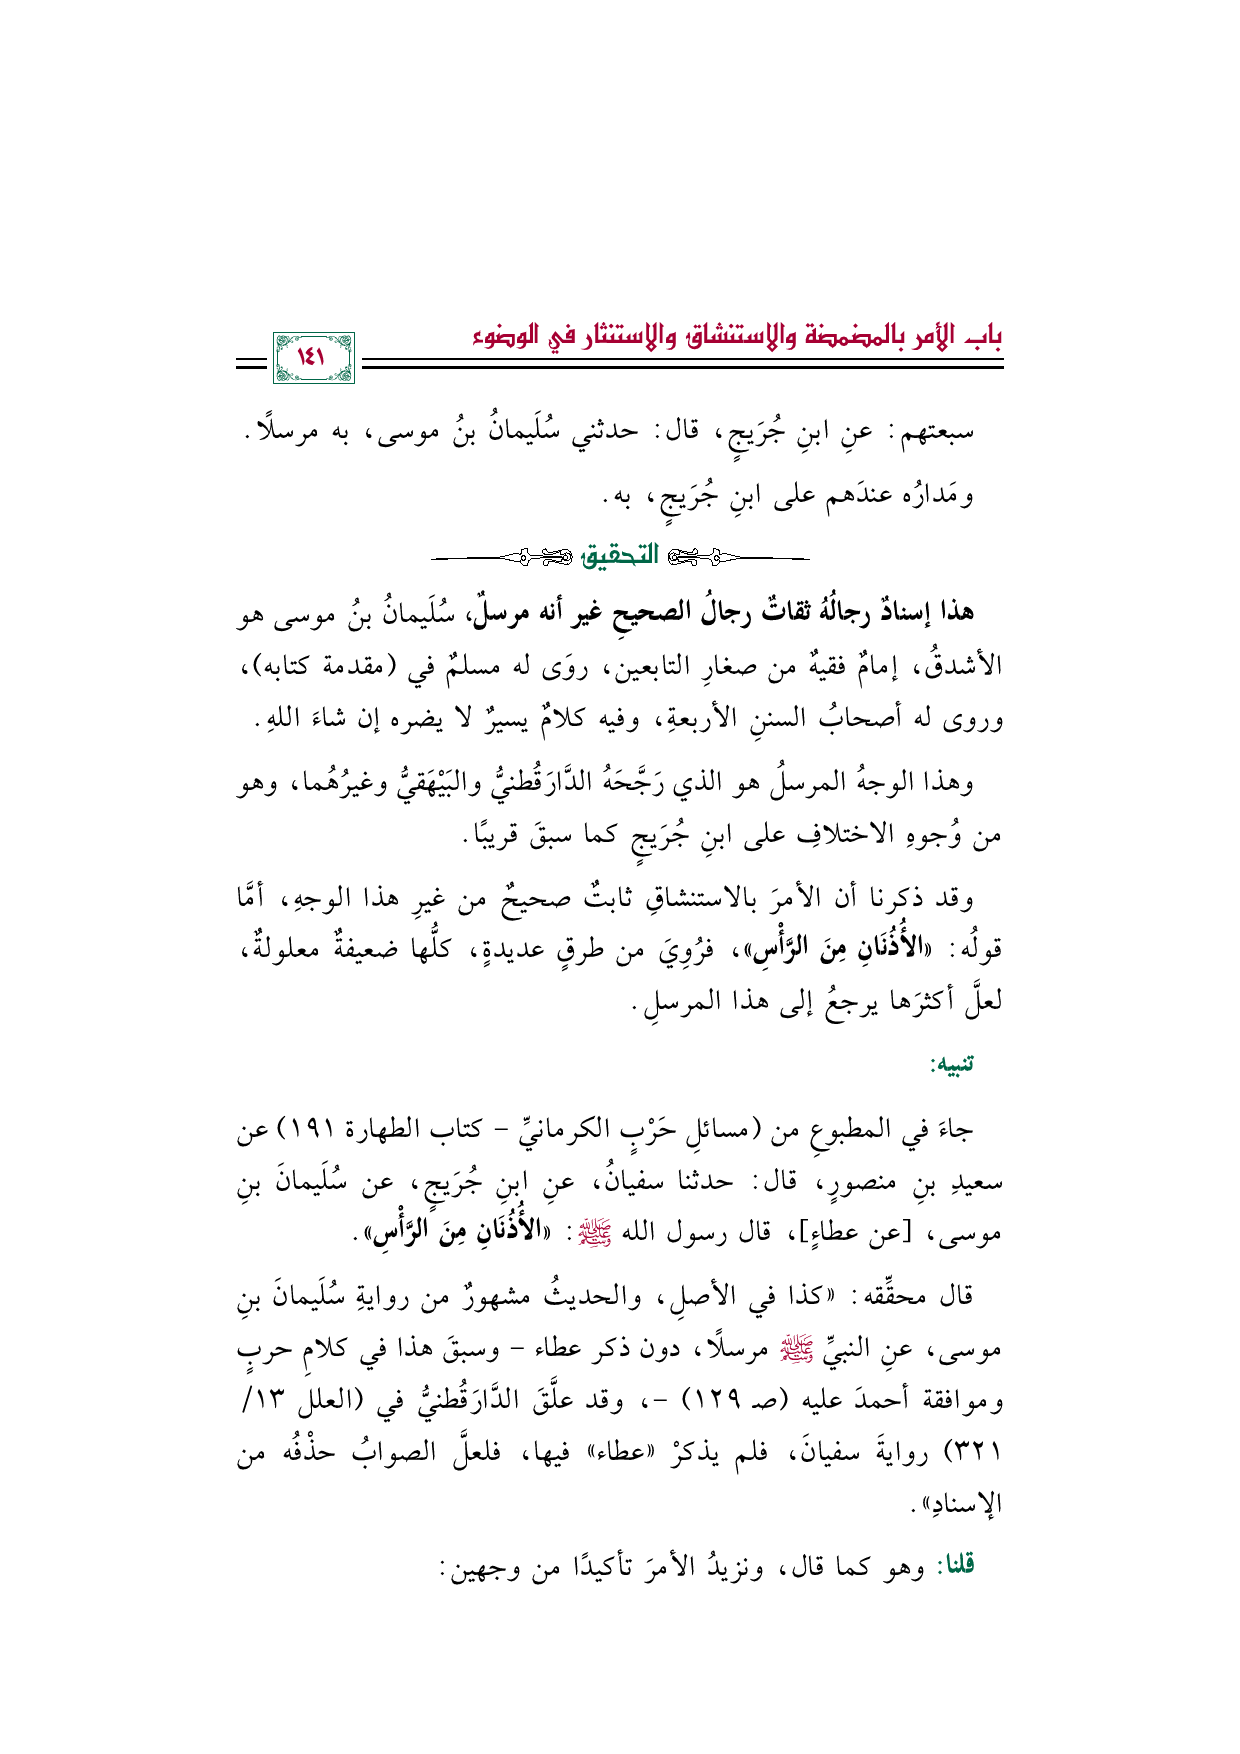 باب الأمر بالمضمضة والاستنشاق والاستنثار في الوضوء
١٤١
سبعتهم: عنِ ابنِ جُرَيجٍ، قال: حدثني سُلَيمانُ بنُ موسى، به مرسلًا.
ومَدارُه عندَهم على ابنِ جُرَيجٍ، به.
التحقيق
هذا إسنادٌ رجالُهُ ثقاتٌ رجالُ الصحيحِ غير أنه مرسلٌ، سُلَيمانُ بنُ موسى هو
الأشدقُ، إمامٌ فقيهٌ من صغارِ التابعين، روَى له مسلمٌ في (مقدمة كتابه)،
وروى له أصحابُ السننِ الأربعةِ، وفيه كلامٌ يسيرٌ لا يضره إن شاءَ اللهِ.
وهذا الوجهُ المرسلُ هو الذي رَجَّحَهُ الدَّارَقُطنيُّ والبَيْهَقيُّ وغيرُهُما، وهو
من وُجوهِ الاختلافِ على ابنِ جُرَيجٍ كما سبقَ قريبًا.
وقد ذكرنا أن الأمرَ بالاستنشاقِ ثابتٌ صحيحٌ من غيرِ هذا الوجهِ، أمَّا
قولُه: «الأُذُنَانِ مِنَ الرَّأْسِ»، فرُوِيَ من طرقٍ عديدةٍ، كلُّها ضعيفةٌ معلولةٌ،
لعلَّ أكثرَها يرجعُ إلى هذا المرسلِ.
تنبيه:
جاءَ في المطبوعِ من (مسائلِ حَرْبٍ الكرمانيِّ - كتاب الطهارة ١٩١) عن
سعيدِ بنِ منصورٍ، قال: حدثنا سفيانُ، عنِ ابنِ جُرَيجٍ، عن سُلَيمانَ بنِ
موسى، [عن عطاءٍ]، قال رسول الله ﷺ: «الأُذُنَانِ مِنَ الرَّأْسِ».
قال محقِّقه: «كذا في الأصلِ، والحديثُ مشهورٌ من روايةِ سُلَيمانَ بنِ
موسى، عنِ النبيِّ ﷺ مرسلًا، دون ذكر عطاء - وسبقَ هذا في كلامِ حربٍ
وموافقة أحمدَ عليه (صـ ١٢٩) -، وقد علَّقَ الدَّارَقُطنيُّ في (العلل ١٣/
٣٢١) روايةَ سفيانَ، فلم يذكرْ «عطاء» فيها، فلعلَّ الصوابُ حذْفُه من
الإسنادِ».
قلنا: وهو كما قال، ونزيدُ الأمرَ تأكيدًا من وجهين: